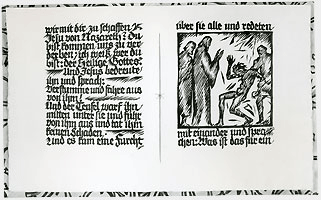 wir mit dir zu schaffen
Jesu von Nazareth? Du
bist kommen uns zu ver-
derben; ich weiß wer du
bist: der Heilige Gottes
Und Jesus bedreute
ihn und sprach:
Verstumme und fahre aus
von ihm!
Und der Teufel warf ihn
mitten unter sie und fuhr
von ihm aus und tat ihm
keinen Schaden.
Und es kam eine Furcht
über sie alle und redeten
mit einander und spra-
chen: Was ist das für ein